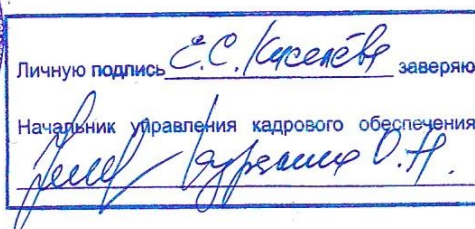 Личную подпись Е.С. Киселёва заверяю
Начальник управления кадрового обеспечения
О.Н.